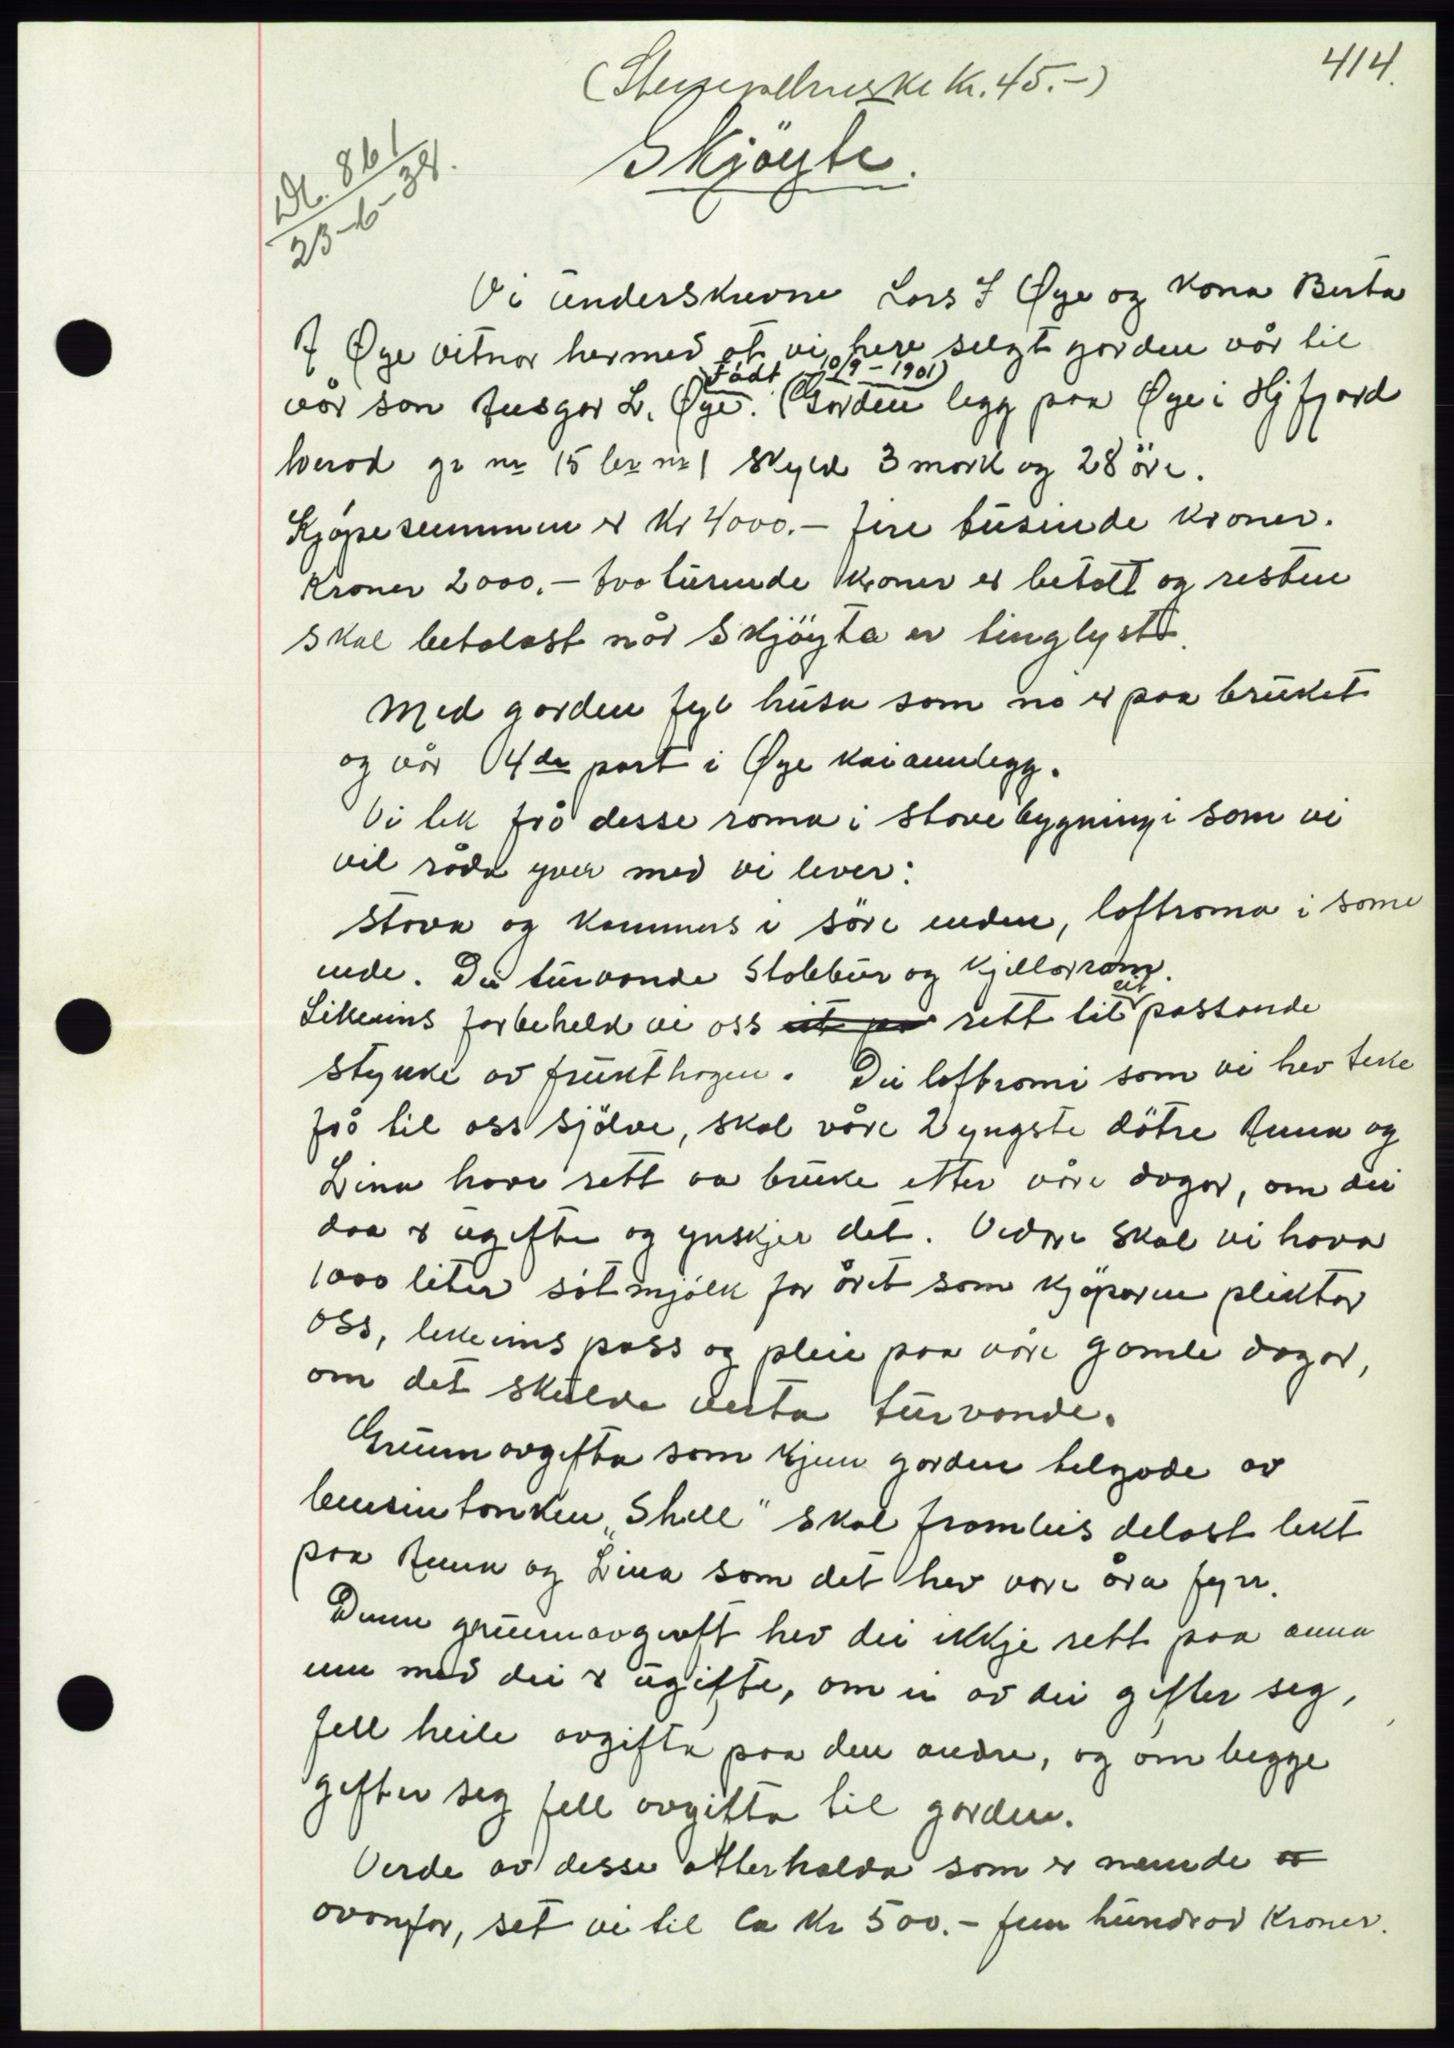 414.
(Stempelmerke kr. 45.-)
Skjöyte.
Db. 861
23-6-38.
Vi underskrevne Lars J Øye og kona Berta
J Øye vitnar hermed at vi heve selgt garden vår til
født 10/9-1901)
vår son Ansgar L. Øye. (Garden legg paa Øye i Hjfjord
herad gr nr 15 br nr 1 skyld 3 mark og 28 öre.
Kjöpesummen er Kr 4000.- fire tusinde kroner.
Kroner 2000.- tvo tusende kroner er betalt og resten
skal betalast når skjöyta er tinglyst.
Med garden fyl husa som no er paa bruket
og vår 4de part i Øye kaiannlegg.
Vi tek frå desse roma i stovebygningi som vi
vil råda yver med vi lever:
Stova og kammers i söre enden, loftroma i same
ende. Dei turvande Stabbur og kjellarrom.
Likeeins forbeheld vi oss eit pa rett til eit passande
stykke av frukthagen. Dei loftromi som vi hev teke
frå til oss sjölve, skal våre 2 yngste dötre Anna og
Lina have rett aa bruke etter våre dagar, om dei
daa er ugifte og ynskjer det. Vidare skal vi hava
1000 liter sötmjölk for året som kjöparen pliktar
oss, likeeins pass og pleie paa våre gamle dagar,
om det skulde verta turvande.
Grunnavgifta som kjem garden tilgode av
bensintanken "Shell" skal framleis delast likt
paa Anna og Lina som det hev vore åra fyrr.
Denne grunnavgift hev dei ikkje rett paa anna
enn med dei er ugifte, om ei av dei gifter seg,
fell heile avgifta paa den andre, og om begge
gifter seg fell avgifta til garden.
Verde av desse atterhalda som er nemnde av
ovanfor, set vi til Ca Kr 500.- fem hundrad kroner.